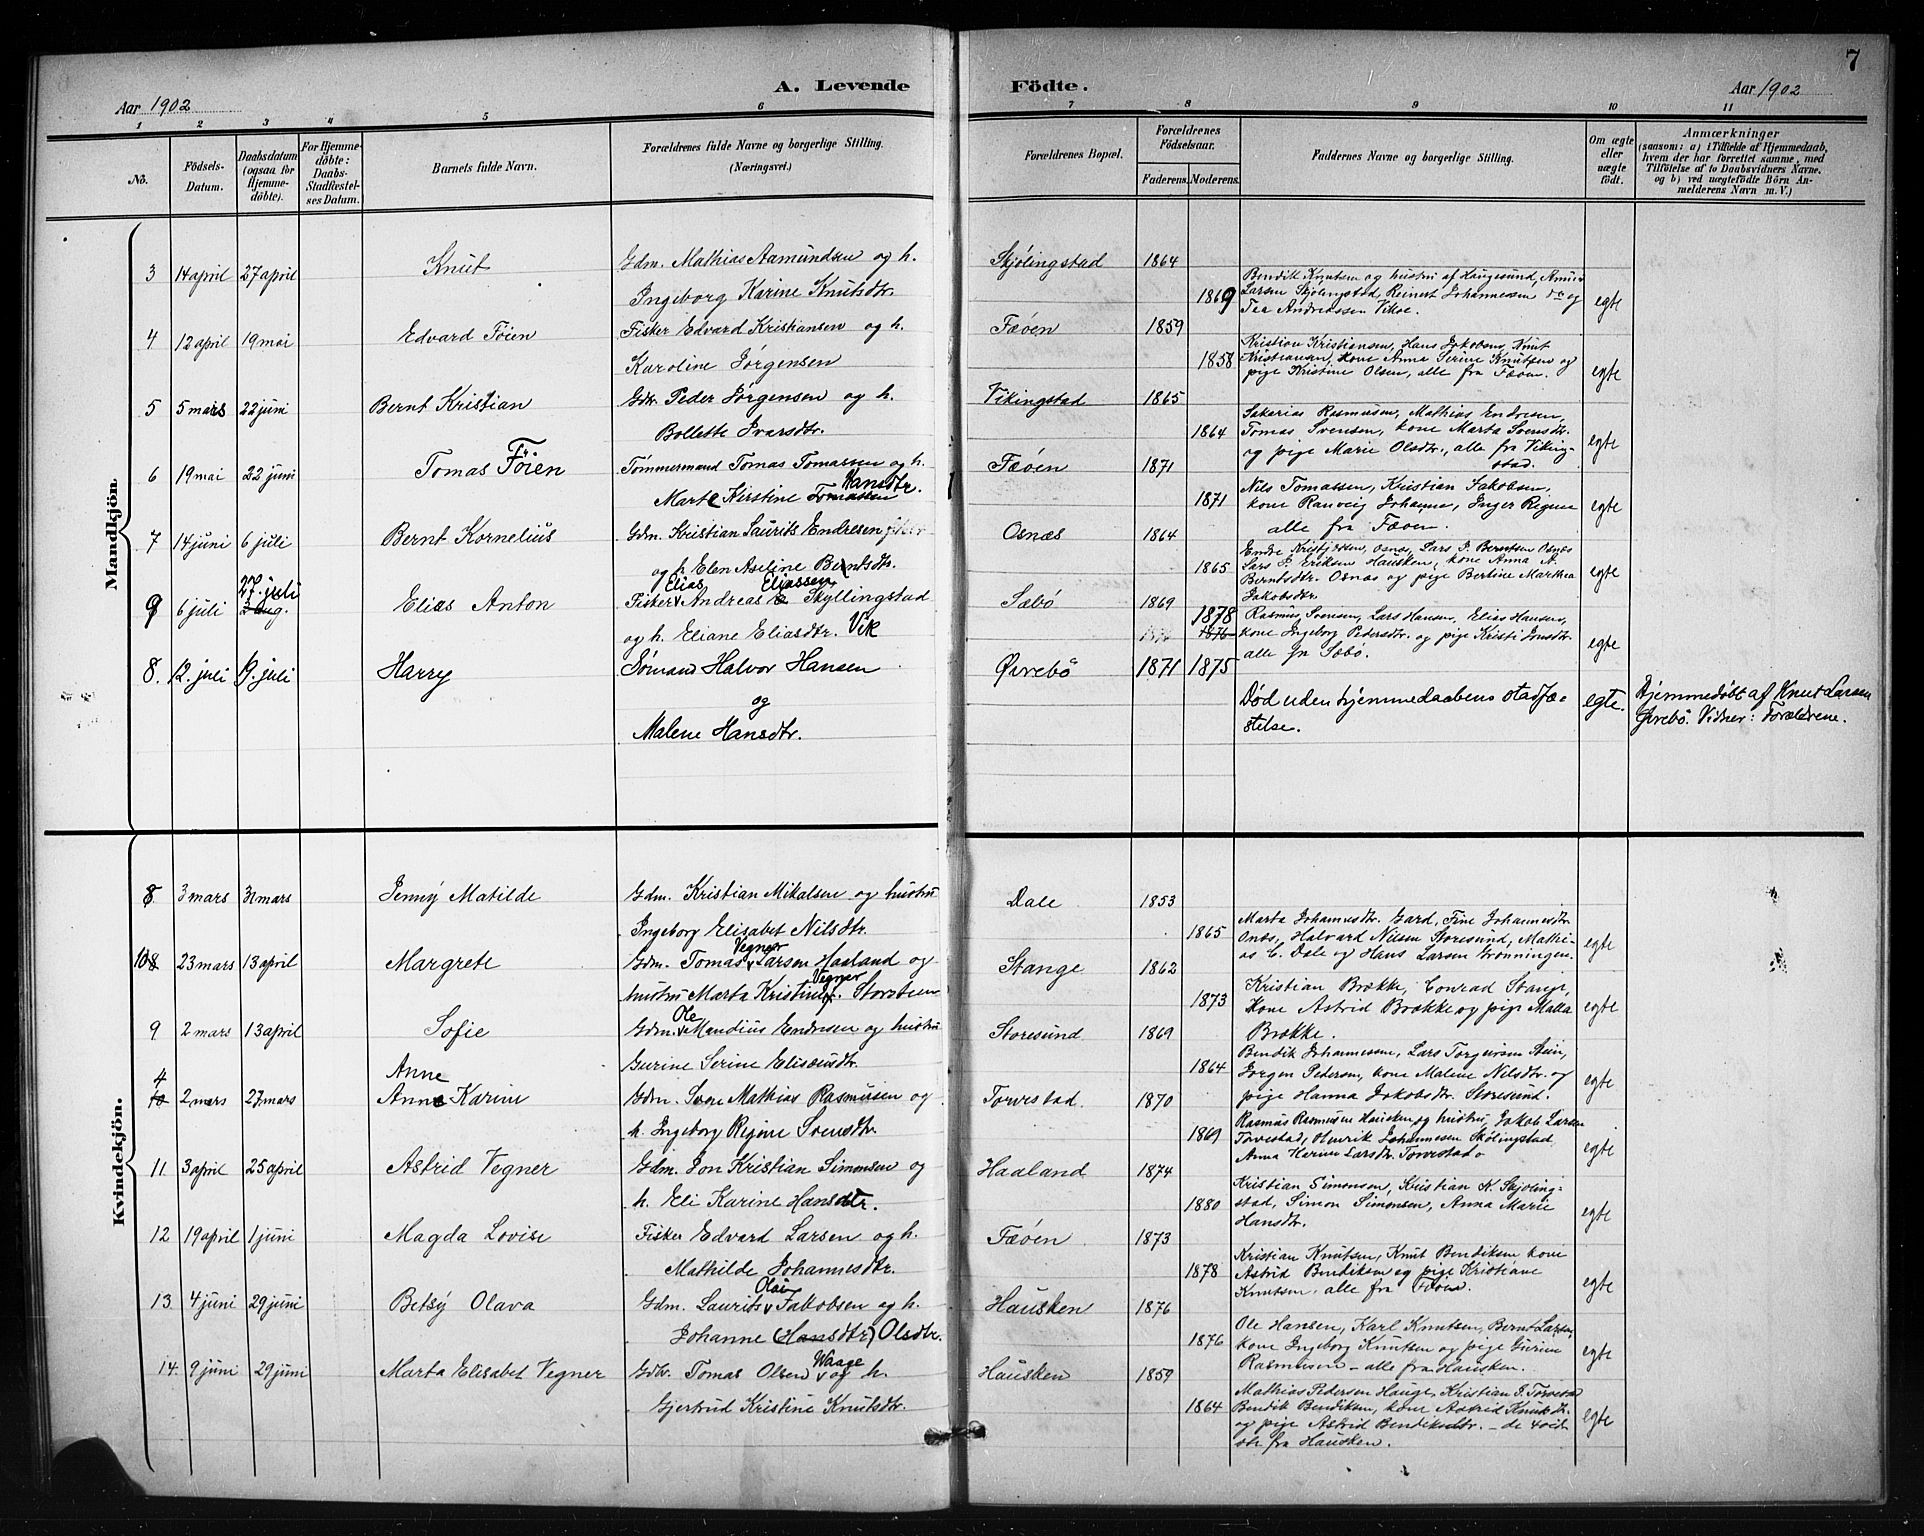 7
A. Levende Födte.
Aar 1902
Aar 1902
1 2 3 4 5 6 7 8 9 10 11
No.
Födsels-Datum.
Daabsdatum (ogsaa for Hjemmedöbte).
For Hjemmedöbte: Daabs-Stadfæstelses Datum.
Barnets fulde Navn.
Forældrenes fulde Navne og borgerlige Stilling.
(Næringsvei.)
Forældrenes Bopæl.
Forældrenes Födselsaar.
Faderens. Moderens.
Faddernes Navne og borgerlige Stilling.
Om ægte eller uægte födt.
Anmærkninger
(saasom: a) i Tilfælde af Hjemmedaab, hvem der har forrettet samme, med Tilföielse af to Daabsvidners Navne, og b) ved uægtefödte Börn Anmelderens Navn m. V.)
Mandkjön.
3 14 april 27 april Knut Gdm. Mathias Aamundsen og h. Skjölingstad 1864
Ingeborg Karine Knutsdtr. 1869
Bendik Knutsen og hustru af Haugesund, Amund
Larsen Skjölingstad, Reinert Johannessen do og
Tea Andreassen Vikse. egte
4 12 april 19 mai Edvard Föien Fisker Edvard Kristiansen og h. Fæöen 1859
Karoline Jörgensen 1858
Kristian Kristiansen, Hans Jakobsen, Knut
Kristiansen, kone Anna Serine Knutsen og
pige Kristine Olsen, alle fra Fæöen. egte
5 5 mars 22 juni Bernt Kristian Gdbr. Peder Jörgensen og h. Vikingstad 1865
Bollette Ivarsdtr. 1864
Sakarias Rasmusen, Mathias Endresen,
Tomas Svensen, kone Marta Svensdtr.
og pige Marie Olsdtr., alle fra Viking-
stad. egte
6 19 mai 22 juni Tomas Föien Tömmermand Tomas Tomassen og h. Fæöen 1871
Marte Kirstine Tomassen Hansdtr. 1871
Nils Tomassen, Kristian Jakobsen,
kone Ranveig Johanne, Inger Regine
alle fra Fæöen. egte
7 14 juni 6 juli Bernt Kornelius Gdm. Kristian Laurits Endresen Osnæs 1864
og h. Elen Aseline Berntsdtr. 1865
Endre Kristjersen, Osnæs, Lars J. Berntsen Osnæs
Lars J. Eriksen Hausken, kone Anna A.
Berntsdtr. Osnæs og pige Bertine Marthea
Jakobsdtr. egte
27. juli
9 6 juli 3 aug. Elias Anton Fisker Elias Andreas Eliassen Skyllingstad Sæbö 1869
og h. Eliane Eliasdtr. Vik 1878 1876
Rasmus Svensen, Lars Hansen, Elias Hansen,
kone Ingeborg Pedersdtr. og pige Kristi Jonsdtr.
alle fr. Sæbö. egte
8. 12. juli 19. juli Harry Sömand Halvor Hansen Övrebö 1871 1875
og
Malene Hansdtr.
Död uden hjemmedaabens stadfæ-
stelse. egte.
Hjemmedöbt af Knut Larsen
Övrebö. Vidner: Forældrene.
Kvindekjön.
8 3 mars 31 mars Jenny Matilde Gdm. Kristian Mikalsen og hustru Dale 1853
Ingeborg Elisabet Nilsdtr. 1865
Marta Johannesdtr. Gard, Tine Johannesdtr.
Osnes, Halvard Nilsen Storesund, Mathi-
as C. Dale og Hans Larsen Grönningen. egte
10 8 23 mars 13 april Margrete Gdm. Tomas Vegner Larsen Haaland og Stange 1862
hustru Marta Kristine Vegner Storstein 1873
Kristian Brække, Conrad Stange,
Kone Astrid Brække og pige Malla
Brække. egte
9 2 mars 13 april Sofie Gdm. Ole Mandius Endresen og hustru Storesund 1869
Gurine Serine Eliseusdtr. 1864
Bendik Johannessen, Lars Torgersen Stein,
Jörgen Pedersen, kone Malene Nilsdtr. og
pige Hanna Jakobsdtr. Storesund. egte
4 Anne
10 2 mars 27 mars Anne Karine Gdm. Sven Mathias Rasmussen og Torvestad 1870
h. Ingeborg Regine Svensdtr. 1869
Rasmus Rasmussen Hausken og hustru, Jakob Larsen
Torvestad, Henrik Johannesen Skölingstad
Anna Karine Larsdtr. Torvestad. egte
11 3 april 25 april Astrid Vegner Gdm. Jon Kristian Simonsen og Haaland 1874
h. Eli Karine Hansdtr. 1880
Kristian Simonsen, Kristian K. Skjöling-
stad, Simon Simonsen, Anna Marie
Hansdtr. egte
12 19 april 1 juni Magda Lovise Fisker Edvard Larsen og h. Fæöen 1873
Mathilde Johannesdtr. 1878
Kristian Knutsen, Knut Bendiksen kone
Astrid Bendiksen og pige Kristiane
Knutsen, alle fra Fæöen. egte
13. 4 juni 29 juni Betsy Olava Gdm. Laurits Olai Jakobsen og h. Hausken 1876
Johanne (Hansdtr) Olsdtr. 1876
Ole Hansen, Karl Knutsen, Bernt Larsen,
kone Ingeborg Knutsen og pige Gurine
Rasmussen – alle fra Hausken. egte
14. 9 juni 29 juni Marta Elisabet Vegner Gdbr. Tomas Olsen Waage og h. Hausken 1859
Gjertrud Kristine Knutsdtr. 1864
Mathias Pedersen Hauge, Kristian J. Torvestad
Bendik Bendiksen, kone Astrid Knutsdtr.
og pige Astrid Bendiksdtr. – de 4 sid-
ste fra Hausken. egte